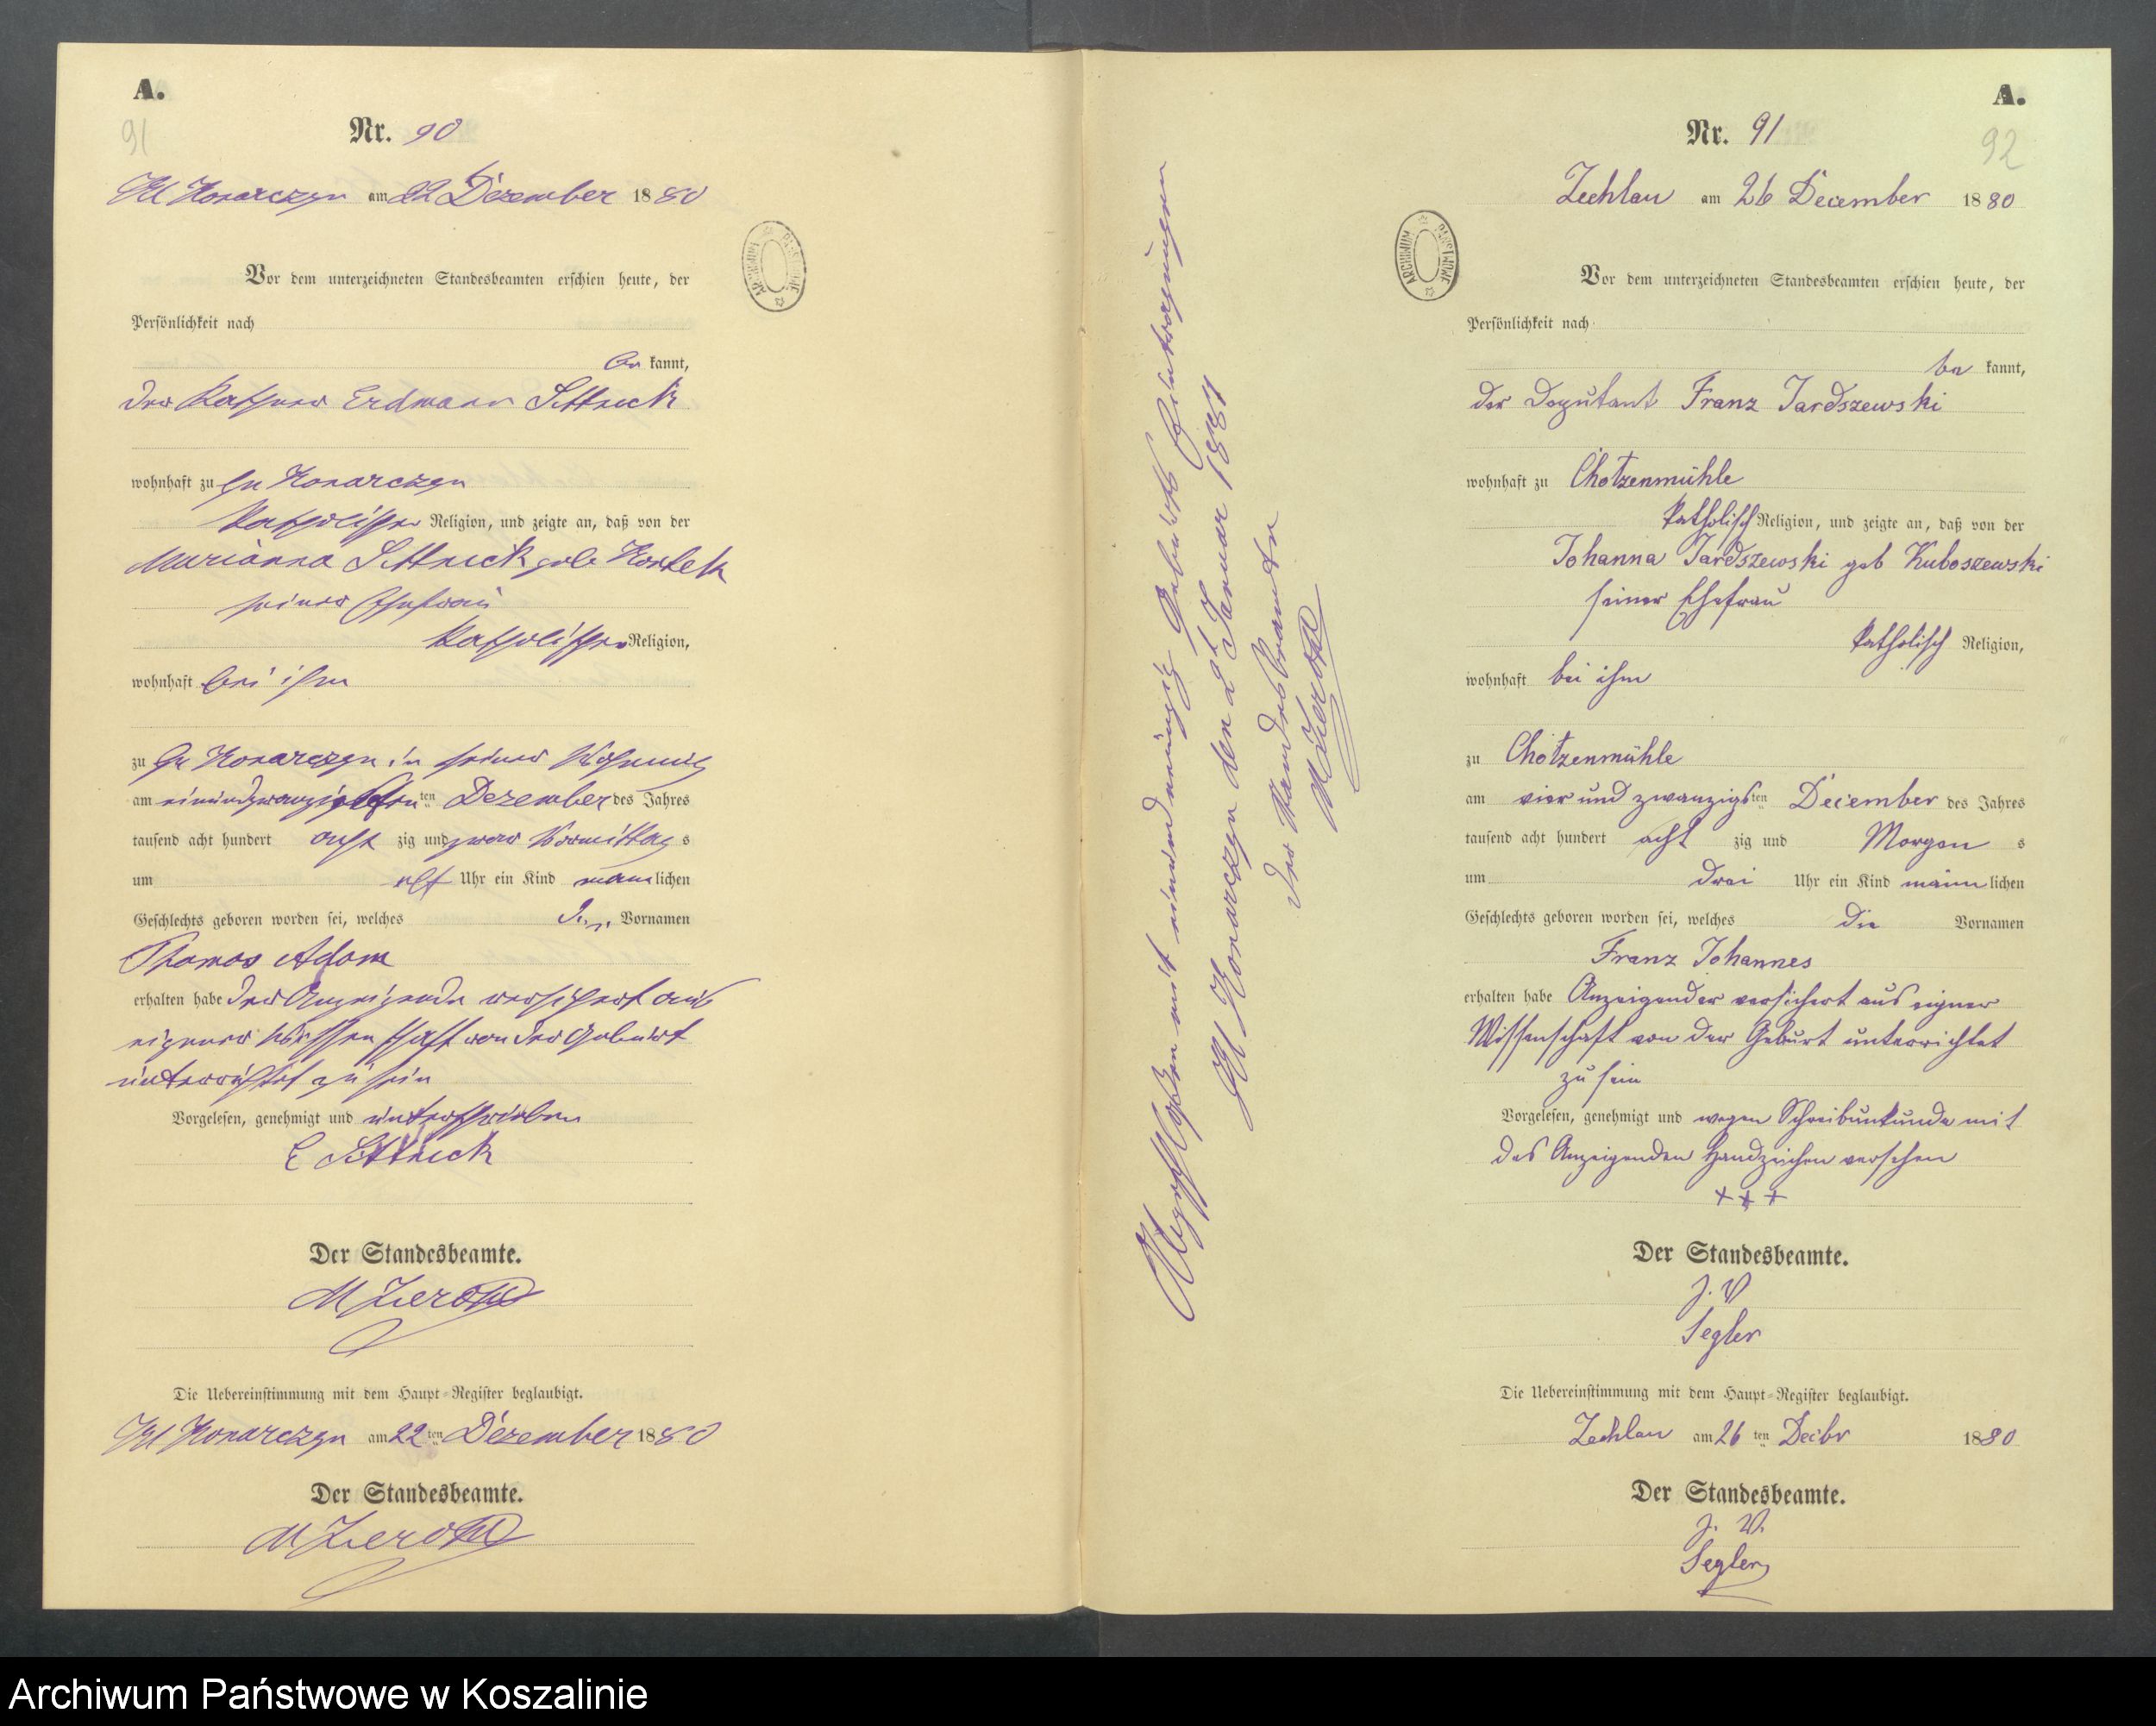 A.
91
Nr. 90
Kl Konarczyn am 22 Dezember 1880
Vor dem unterzeichneten Standesbeamten erschien heute, der
Persönlichkeit nach
be kannt,
der Käthner Erdmann
wohnhaft zu Gr Konarczyn
katholischer Religion, und zeigte an, daß von der
Marianna geb
seiner Ehefrau
katholischer Religion,
wohnhaft bei ihm
zu Gr Konarczyn in seiner Wohnung
am einundzwanzigsten ten Dezember des Jahres
tausend acht hundert acht zig und zwar Vormittag s
um elf Uhr ein Kind mann lichen
Geschlechts geboren worden sei, welches den Vornamen
Thomas Adam
erhalten habe der Anzeigende versichert aus
eigener Wissenschaft von der Geburt
unterrichtet zu sein
Vorgelesen, genehmigt und unterschrieben
E
Der Standesbeamte.
Die Uebereinstimmung mit dem Haupt-Register beglaubigt.
Kl Konarczyn am 22 ten Dezember 1880
Der Standesbeamte.
ARCHIWUM PAŃSTWOWE
Abgeschlossen mit einundneunzig Geburts Eintragungen
Kl Konarczyn den 2t Januar 1881
Der Standesbeamte
A.
92
Nr. 91
Zechlau am 26 December 1880
ARCHIWUM PAŃSTWOWE
Vor dem unterzeichneten Standesbeamten erschien heute, der
Persönlichkeit nach
be kannt,
der Deputant Franz Jardszewski
wohnhaft zu Chotzenmühle
katholisch Religion, und zeigte an, daß von der
Johanna Jardszewski geb Kuboszewski
seiner Ehefrau
katholisch Religion,
wohnhaft bei ihm
zu Chotzenmühle
am vier und zwanzigs ten December des Jahres
tausend acht hundert acht zig und Morgen s
um drei Uhr ein Kind männ lichen
Geschlechts geboren worden sei, welches die Vornamen
Franz Johannes
erhalten habe Anzeigender versichert aus eigner
Wissenschaft von der Geburt unterrichtet
zu sein
Vorgelesen, genehmigt und wegen Schreibunkunde mit
des Anzeigenden Handzeichen versehen
+++
Der Standesbeamte.
J. V
Segler
Die Uebereinstimmung mit dem Haupt-Register beglaubigt.
Zechlau am 26 ten Decbr 1880
Der Standesbeamte.
J. V.
Segler
Archiwum Państwowe w Koszalinie